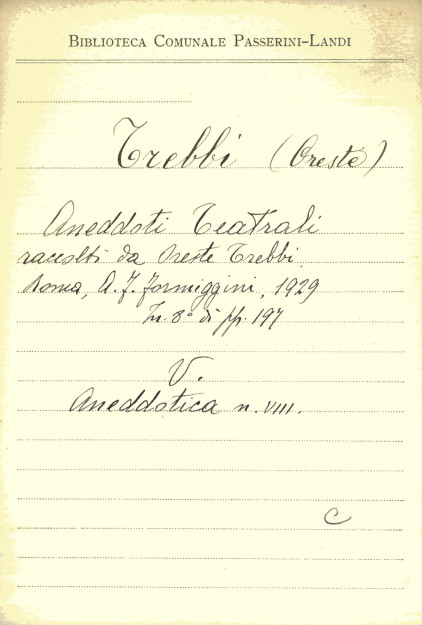 BIBLIOTECA COMUNALE PASSERINI-LANDI
Trebbi (Oreste)
Aneddoti Teatrali
raccolti da Oreste Trebbi
Roma, A. F. Formiggini, 1929
In. 8° di pp. 197
V.
Aneddotica n. VIII.
C